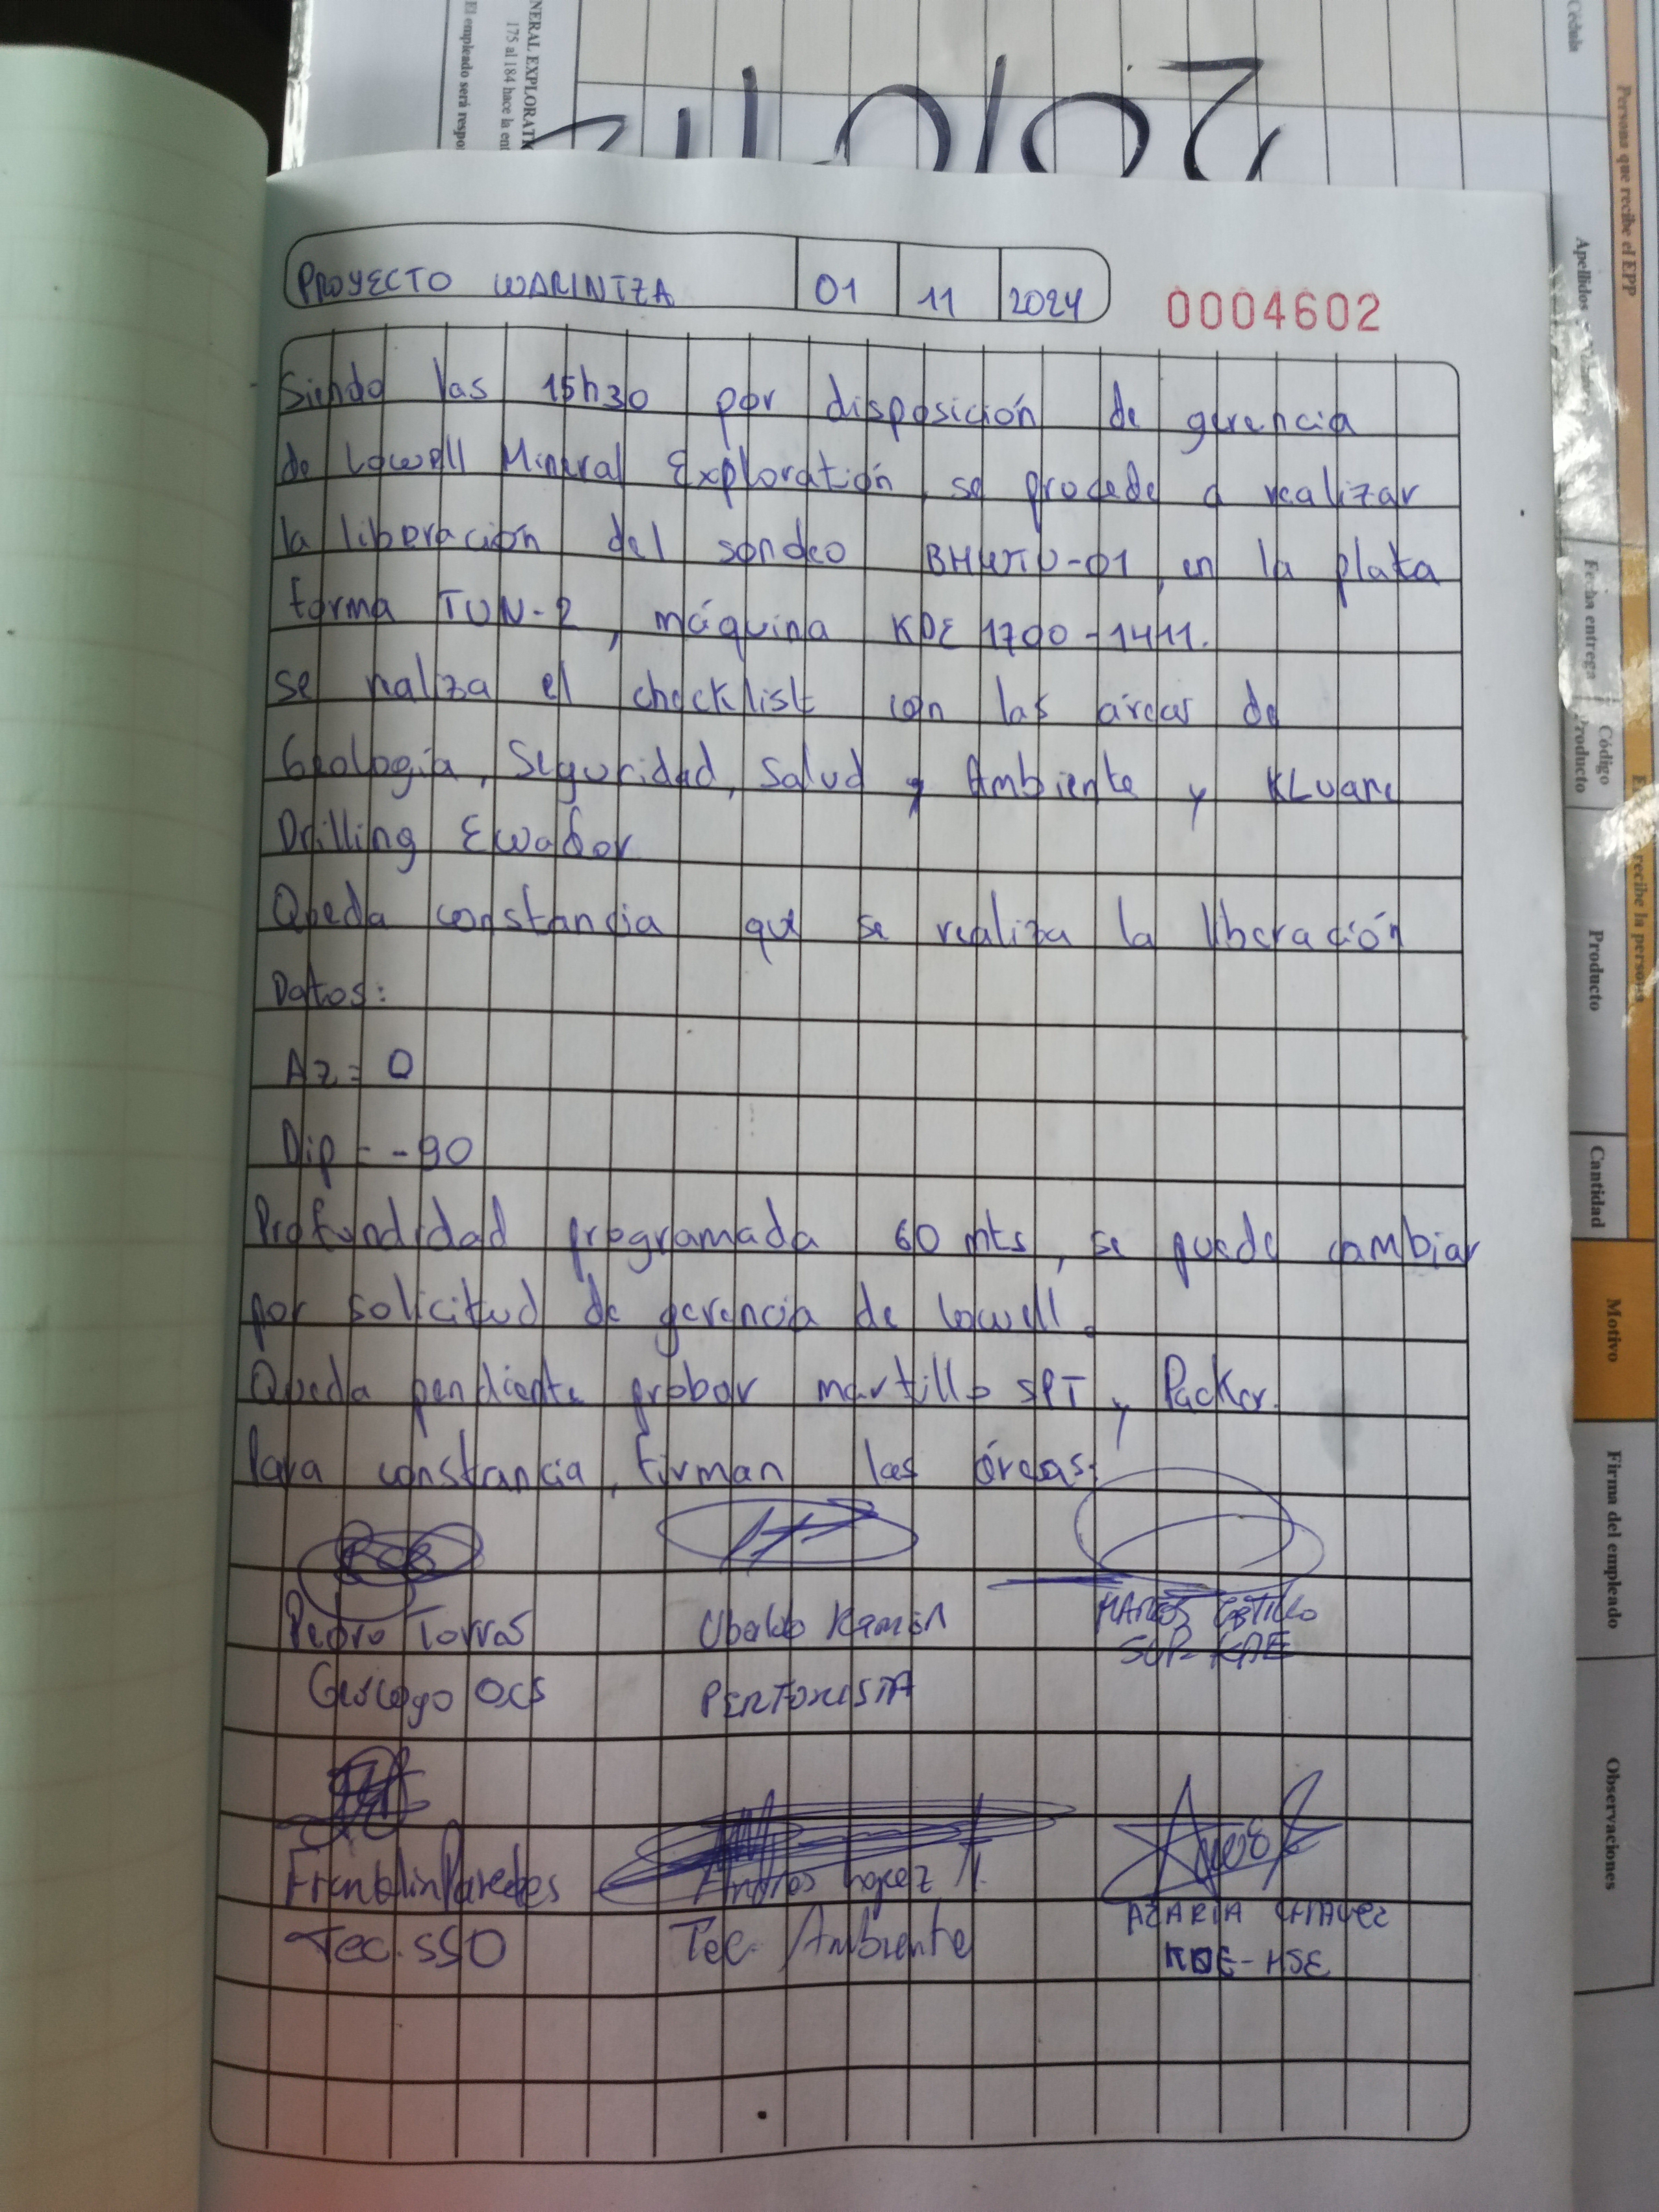 NERAL EXPLORATI
175 al 184 hace la ent
El empleado será respo
Cédula
Persona que recibe el EPP
Apellidos
Fecha entrega
Código
Producto
recibe la persona
Producto
Cantidad
Motivo
Firma del empleado
Observaciones
PROYECTO WARINTZA 01 11 2024
0004602
Siendo las 15h30 por disposición de gerencia
de Lowell Mineral Exploratión, se procede a realizar
la liberación del sondeo BHWTU-01, en la plata
forma TUN-2, máquina KDE 1700-1411.
se realiza el checklist con las áreas de
Geología, Seguridad, Salud y Ambiente y KLuane
Drilling Ecuador
Queda constancia que se realiza la liberación
Datos:
Az = 0
Dip = -90
Profundidad programada 60 mts, se puede cambiar
por solicitud de gerencia de Lowell.
Queda pendiente probar martillo SPT y Packer.
Para constancia, firman las áreas:
Pedro Torres Ubaldo Ramón MARCOS CASTILLO
SUP KDE
Geólogo OCS PERFORISTA
Franklin Paredes Andres Lopez M. AZARIA CHAVEZ
Tec. SSO Tec. Ambiente KDE-HSE